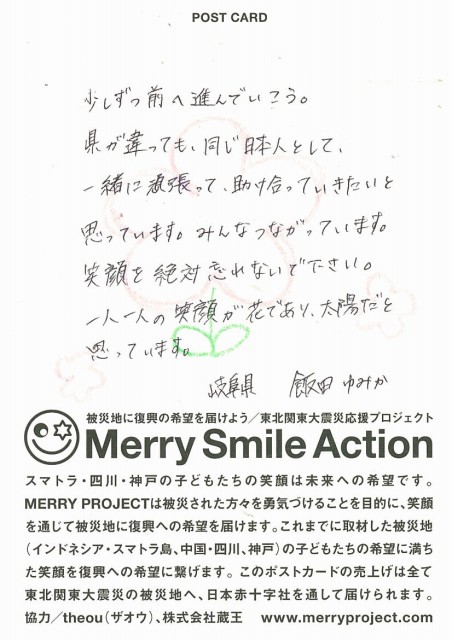 POST CARD
少しずつ前へ進んでいこう。
県が違っても、同じ日本人として、
一緒に頑張って、助け合っていきたいと
思っています。みんなつながっています。
笑顔を絶対忘れないで下さい。
一人一人の笑顔が花であり、太陽だと
思っています。
岐阜県 飯田ゆみか
被災地に復興の希望を届けよう／東北関東大震災応援プロジェクト
Merry Smile Action
スマトラ・四川・神戸の子どもたちの笑顔は未来への希望です。
MERRY PROJECTは被災された方々を勇気づけることを目的に、笑顔
を通じて被災地に復興への希望を届けます。これまでに取材した被災地
（インドネシア・スマトラ島、中国・四川、神戸）の子どもたちの希望に満ち
た笑顔を復興への希望に繋げます。このポストカードの売上げは全て
東北関東大震災の被災地へ、日本赤十字社を通して届けられます。
協力／theou（ザオウ）、株式会社蔵王 www.merryproject.com